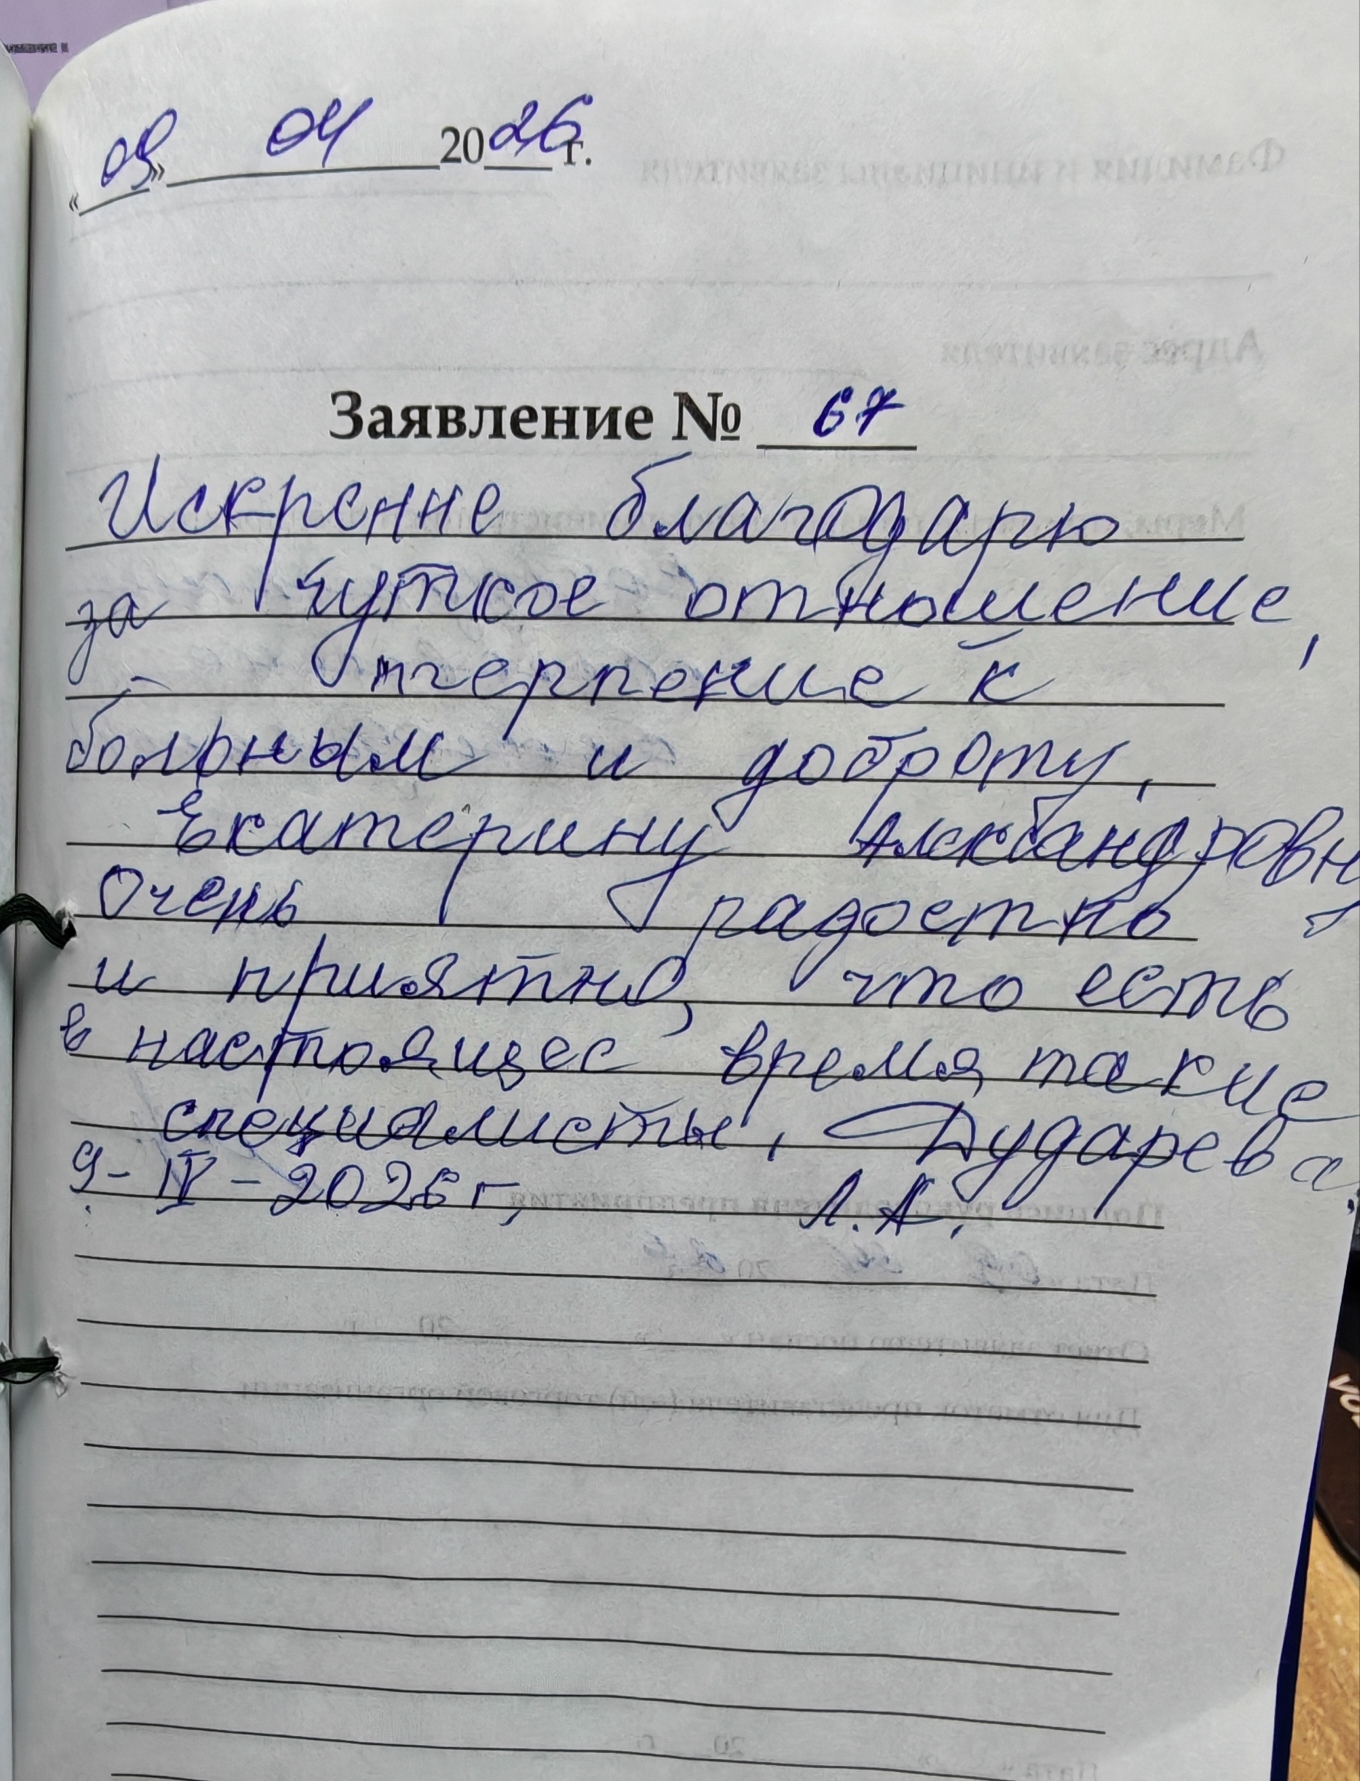 «09» 04 2026 г.
Заявление № 67
Искренне благодарю
за чуткое отношение,
- терпение к
больным и доброту,
Екатерину Александровну
Очень радостно
и приятно, что есть
в настоящее время такие
специалисты, Дударева
9-IV-2026 г, Л.А.